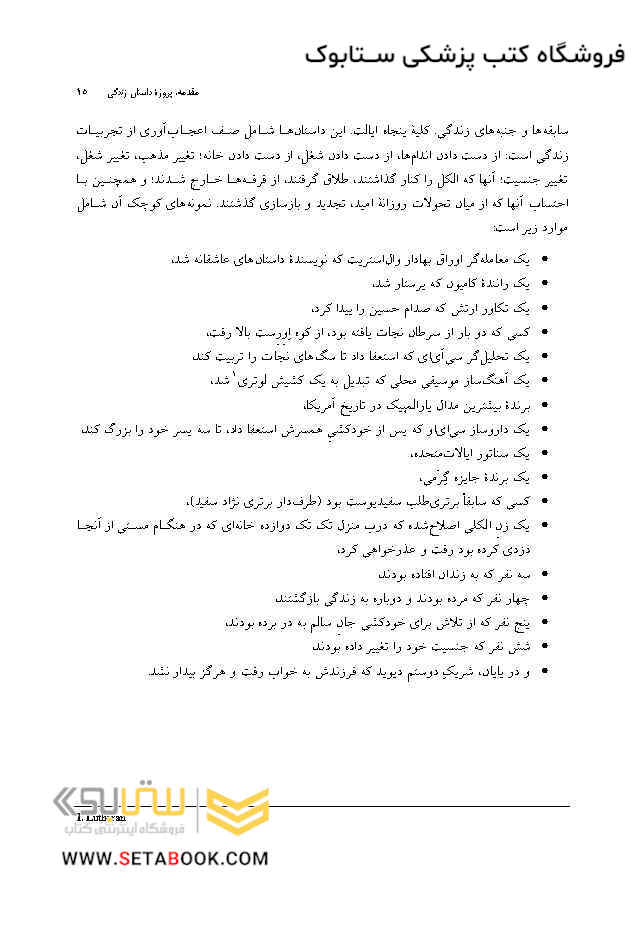 فروشگاه کتب پزشکی ستابوک
مقدمه، پروژهٔ داستان زندگی ۱۵
سابقه‌ها و جنبه‌های زندگی. کلیهٔ پنجاه ایالت. این داستان‌ها شامل صنف اعجاب‌آوری از تجربیات
زندگی است: از دست دادن اندام‌ها، از دست دادن شغل، از دست دادن خانه؛ تغییر مذهب، تغییر شغل،
تغییر جنسیت؛ آنها که الکل را کنار گذاشتند، طلاق گرفتند، از فرقه‌ها خارج شدند؛ و همچنین با
احتساب آنها که از میان تحولات روزانهٔ امید، تجدید و بازسازی گذشتند. نمونه‌های کوچک آن شامل
موارد زیر است:
• یک معامله‌گر اوراق بهادار وال‌استریت که نویسندهٔ داستان‌های عاشقانه شد،
• یک رانندهٔ کامیون که پرستار شد،
• یک تکاور ارتش که صدام حسین را پیدا کرد،
• کسی که دو بار از سرطان نجات یافته بود، از کوه اِوِرِست بالا رفت،
• یک تحلیل‌گر سی‌آی‌ای که استعفا داد تا سگ‌های نجات را تربیت کند
• یک آهنگ‌ساز موسیقی محلی که تبدیل به یک کشیش لوتری۱ شد،
• برندهٔ بیشترین مدال پارالمپیک در تاریخ آمریکا،
• یک داروساز سی‌ای‌او که پس از خودکشیِ همسرش استعفا داد، تا سه پسر خود را بزرگ کند،
• یک سناتور ایالات‌متحده،
• یک برندهٔ جایزه گِرَمی،
• کسی که سابقاً برتری‌طلب سفیدپوست بود (طرف‌دار برتری نژاد سفید)،
• یک زن الکلی اصلاح‌شده که درب منزل تک تک دوازده خانه‌ای که در هنگام مستی از آنجا
دزدی کرده بود رفت و عذرخواهی کرد،
• سه نفر که به زندان افتاده بودند،
• چهار نفر که مرده بودند و دوباره به زندگی بازگشتند،
• پنج نفر که از تلاش برای خودکشی جانِ سالم به در برده بودند،
• شش نفر که جنسیت خود را تغییر داده بودند،
• و در پایان، شریکِ دوستم دیوید که فرزندش به خواب رفت و هرگز بیدار نشد.
1. Lutheran
ستابوک
فروشگاه اینترنتی کتاب
WWW.SETABOOK.COM